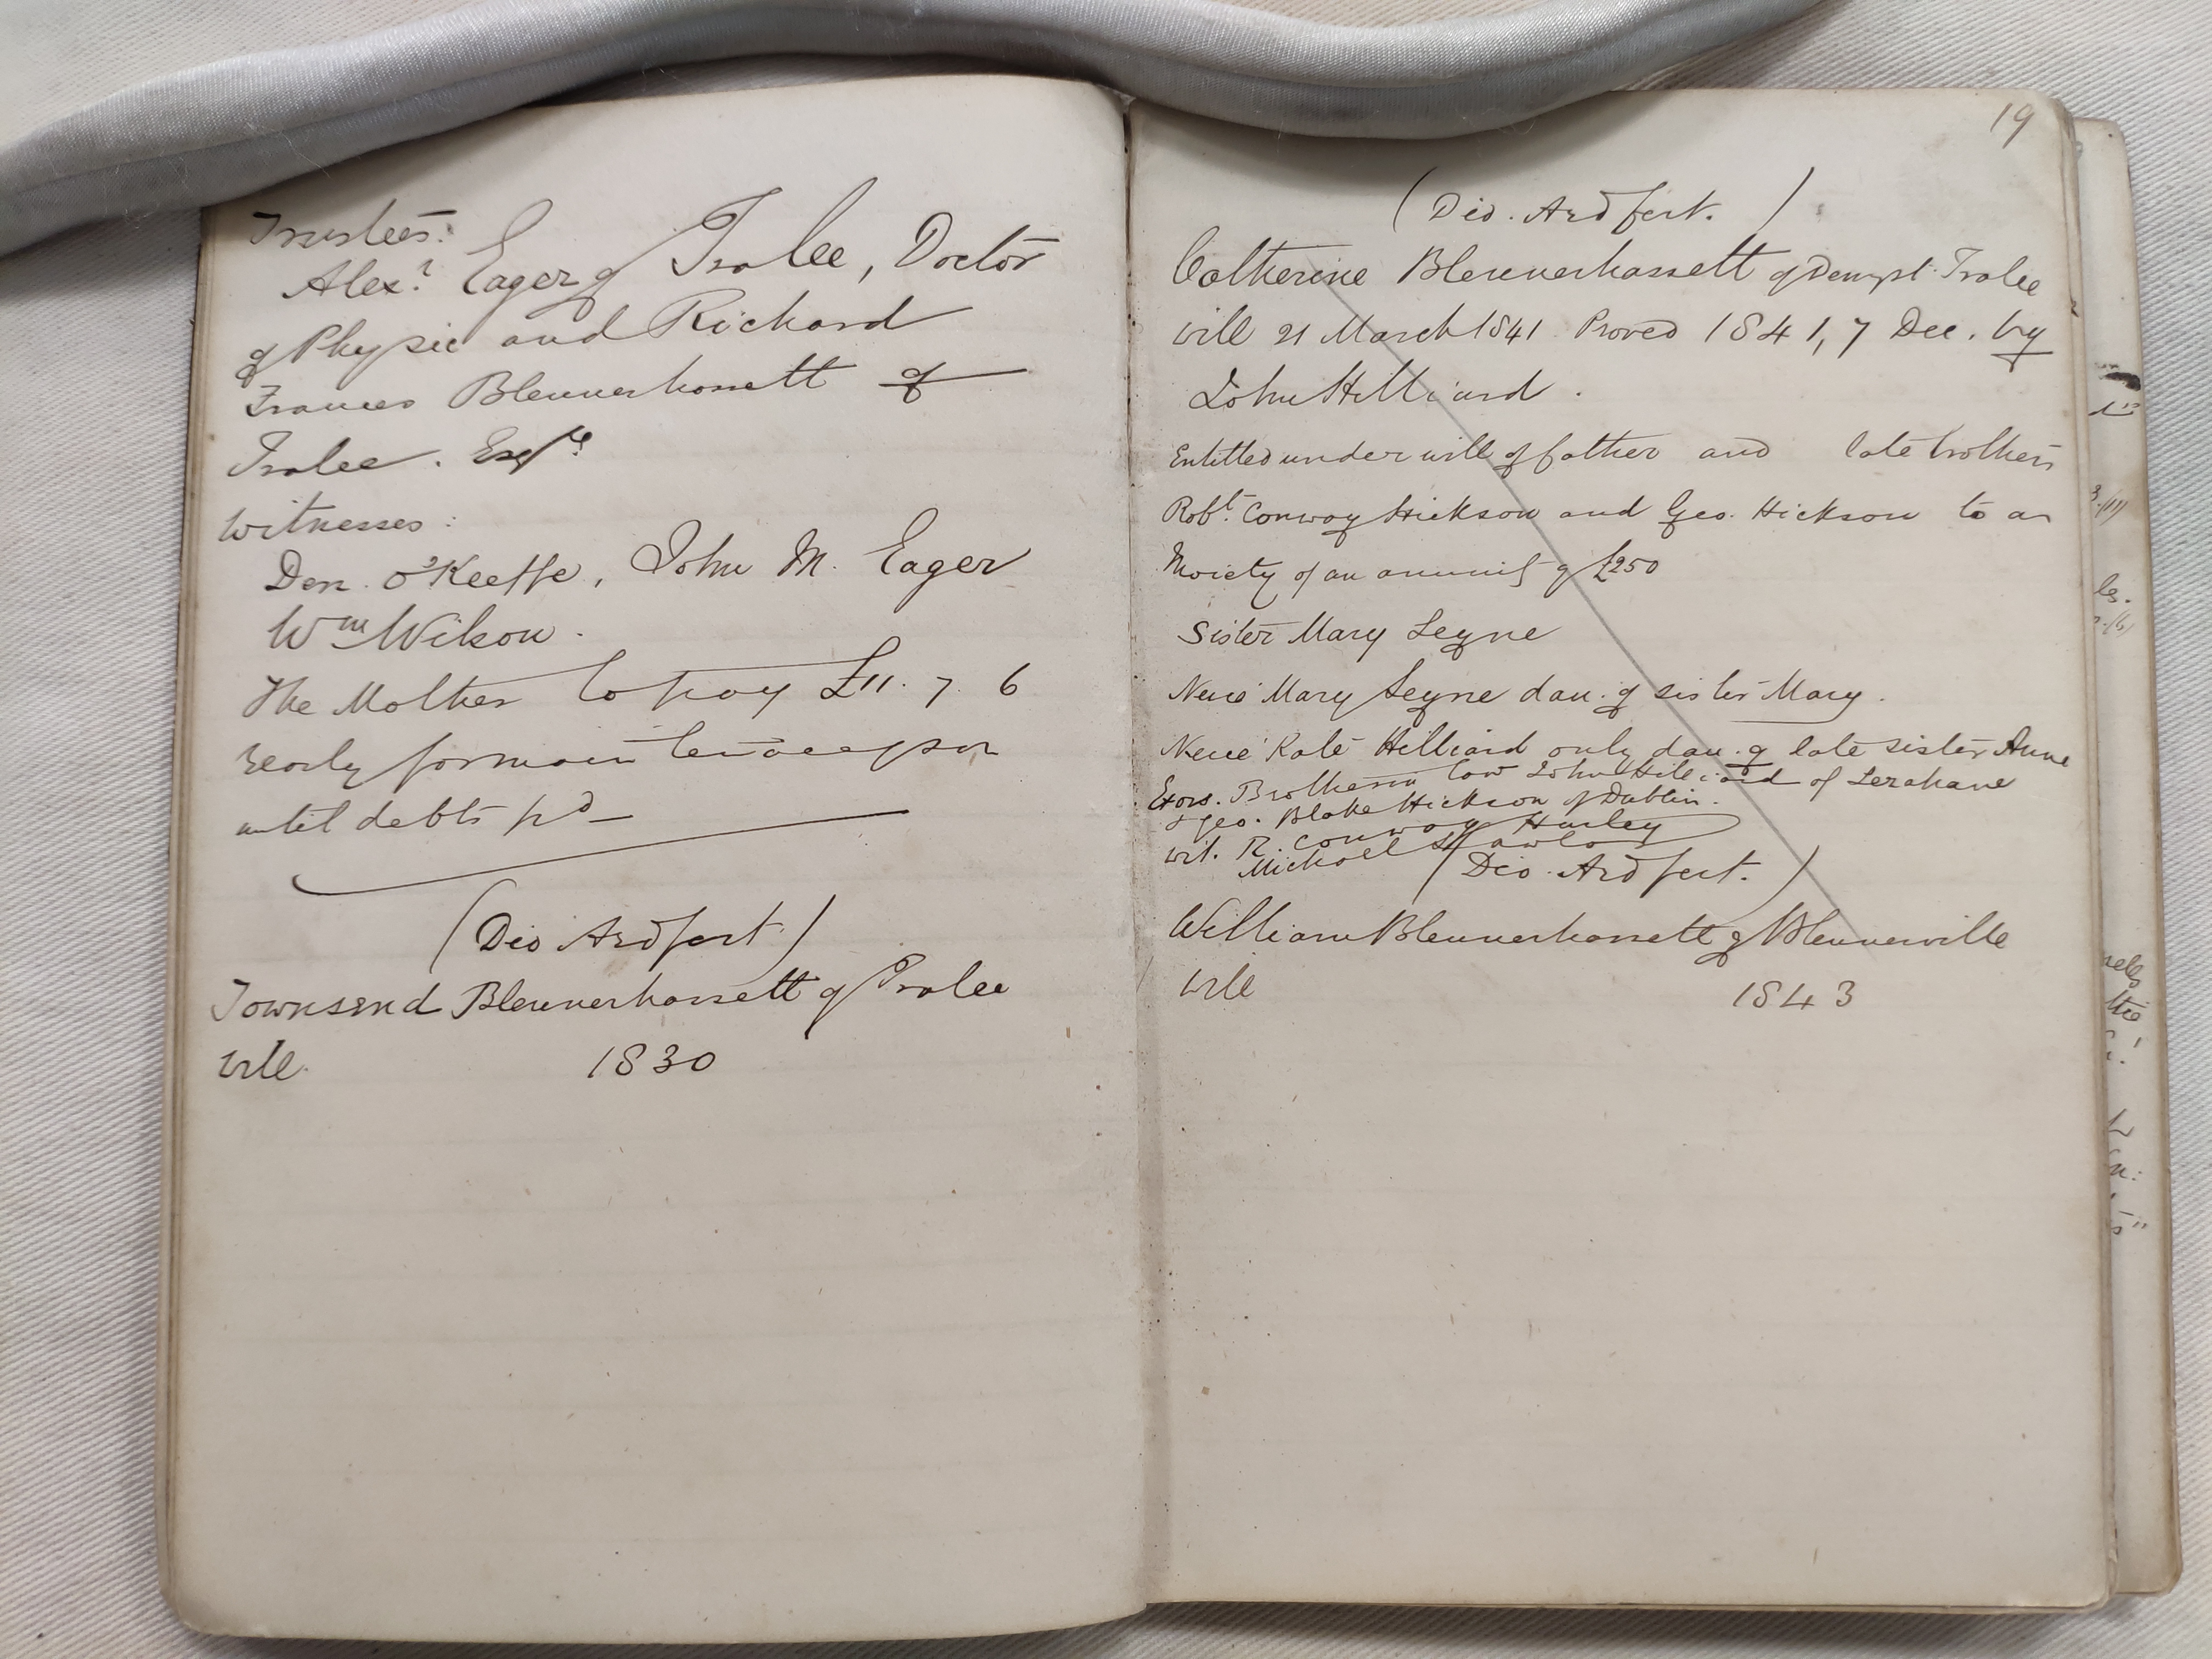 Trustees:
Alexr Eager of Tralee, Doctor
of Physic and Richard
Frances Blennerhassett of
Tralee. Esqre
Witnesses:
Den. O'Keeffe, John M. Eager
Wm Wilson.
The Mother to pay £11. 7. 6
yearly for maintenance of son
until debts pd
(Dio Ardfert)
Townsend Blennerhassett of Tralee
Will. 1830
19
(Dio. Ardfert.)
Catherine Blennerhassett of Denny St Tralee
Will 21 March 1841 Proved 1841, 7 Dec. by
John Hilliard.
Entitled under will of father and late brothers
Robt. Conway Hickson and Geo. Hickson to a
Moiety of an annuity of £250
Sister Mary Leyne
Neice Mary Leyne dau. of sister Mary.
Neice Kate Hilliard only dau. of late sister Anne
Exors. Brother in law John Hilliard of Lerahane
& Geo. Blake Hickson of Dublin.
Wit. R. Conway Hurley
Michael Lawlor
(Dio. Ardfert.)
William Blennerhassett of Blennerville
Will 1843